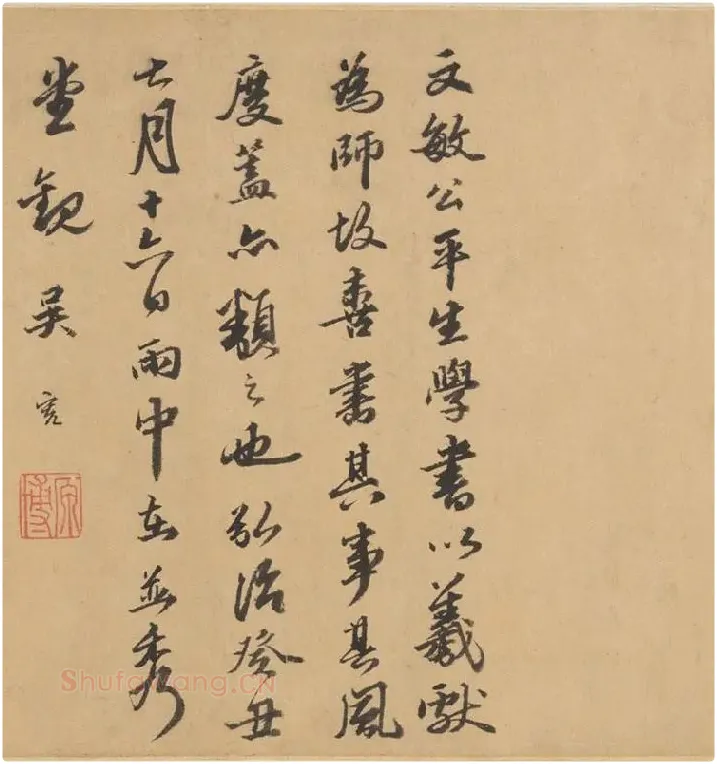 文敏公平生學書以羲獻
為師故喜書其事其風
度蓋亦類之也弘治癸丑
七月十六日雨中在並秀
堂觀吳寬
原博
Shufawang.CN